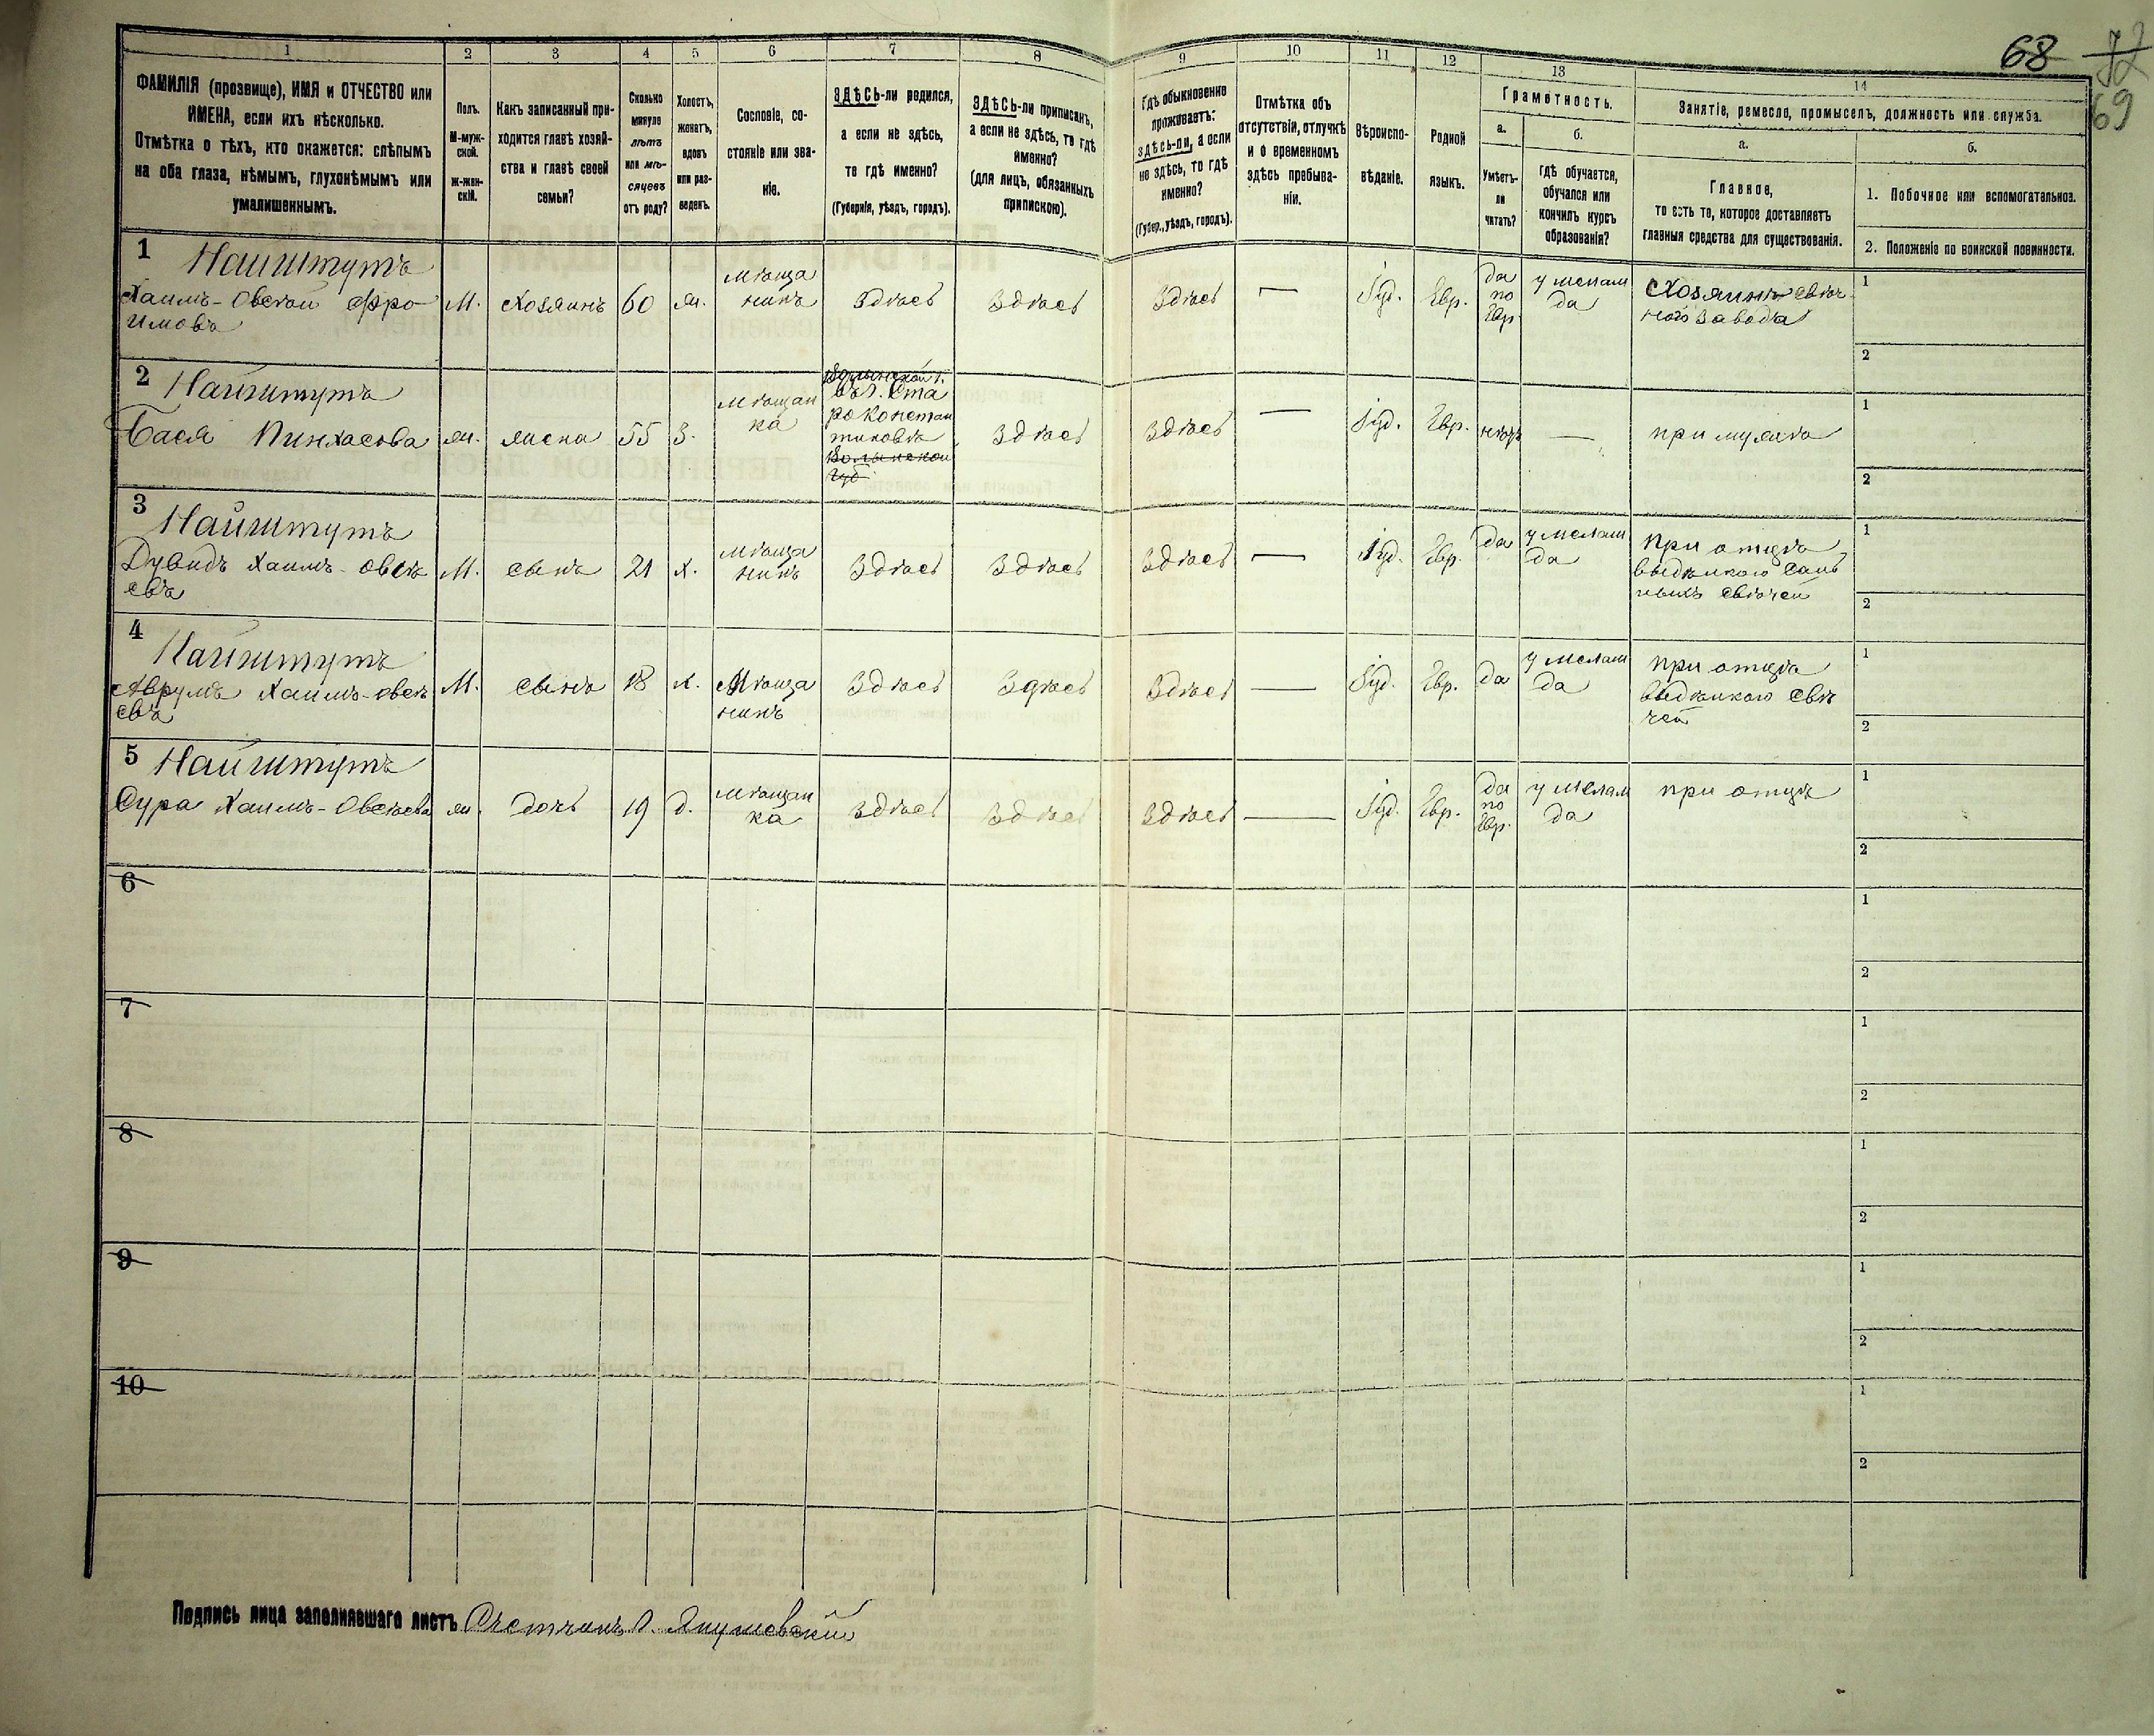 68 72
69
1 2 3 4 5 6 7 8 9 10 11 12 13 14
ФАМИЛІЯ (прозвище), ИМЯ и ОТЧЕСТВО или
ИМЕНА, если ихъ нѣсколько.
Отмѣтка о тѣхъ, кто окажется: слѣпымъ
на оба глаза, нѣмымъ, глухонѣмымъ или
умалишеннымъ.
Полъ.
М-муж-
ской.
Ж-жен-
скій.
Какъ записанный при-
ходится главѣ хозяй-
ства и главѣ своей
семьи?
Сколько
минуло
лѣтъ
или мѣ-
сяцевъ
отъ роду?
Холостъ,
женатъ,
вдовъ
или раз-
веденъ.
Сословіе, со-
стояніе или зва-
ніе.
ЗДѢСЬ-ли родился,
а если не здѣсь,
то гдѣ именно?
(Губернія, уѣздъ, городъ).
ЗДѢСЬ-ли приписанъ,
а если не здѣсь, то гдѣ
именно?
(для лицъ, обязанныхъ
припискою).
Гдѣ обыкновенно
проживаетъ:
здѣсь-ли, а если
не здѣсь, то гдѣ
именно?
(Губер., уѣздъ, городъ).
Отмѣтка объ
отсутствіи, отлучкѣ
и о временномъ
здѣсь пребыва-
ніи.
Вѣроиспо-
вѣданіе.
Родной
языкъ.
Грамотность.
а. б.
Умѣетъ-
ли
читать?
гдѣ обучается,
обучался или
кончилъ курсъ
образованія?
Занятіе, ремесло, промыселъ, должность или служба.
а. б.
Главное,
то есть то, которое доставляетъ
главныя средства для существованія.
1. Побочное или вспомогательное.
2. Положеніе по воинской повинности.
1 Найштутъ
Хаимъ-Овсей Фро
имовъ
М. Хозяинъ 60 ж.
мѣща
нинъ
здѣсь здѣсь здѣсь — Іуд. Евр.
да
по
Евр.
у мелам
да
Хозяинъ свѣч
ного завода
1
2
2 Найштутъ
Бася Пинхасова
ж. жена 55 З.
мѣщан
ка
Волынской г.
Ста
роконстан
тиновъ
Волынской
губ
здѣсь здѣсь — Іуд. Евр. нѣтъ — при мужѣ
1
2
3 Найштутъ
Дувидъ Хаимъ-Овсѣ
евъ
М. сынъ 21 х.
мѣща
нинъ
здѣсь здѣсь здѣсь — Іуд. Евр. да
у мелам
да
при отцѣ
выдѣлкою саль
ныхъ свѣчей
1
2
4 Найштутъ
Аврумъ Хаимъ-Овсѣ
евъ
М. сынъ 18 х.
Мѣща
нинъ
здѣсь здѣсь здѣсь — Іуд. Евр. да
у мелам
да
при отцѣ
выдѣлкою свѣ
чей
1
2
5 Найштутъ
Сура Хаимъ-Овсѣева
ж. дочь 19 д.
мѣщан
ка
здѣсь здѣсь здѣсь — Іуд. Евр.
да
по
Евр.
у мелам
да
при отцѣ
1
2
6
1
2
7
1
2
8
1
2
9
1
2
10
1
2
Подпись лица заполнявшаго листъ Счетчикъ